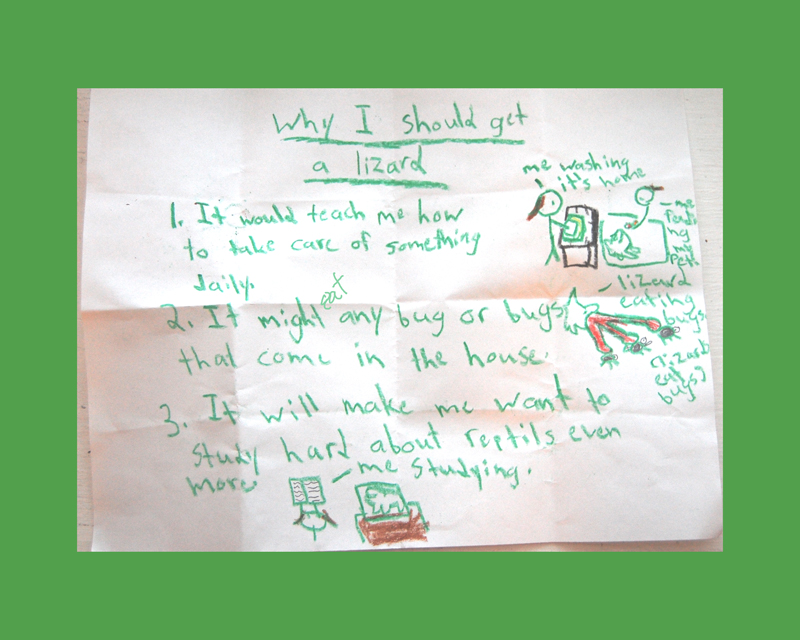 Why I should get
a lizard
me washing
it's home
1. It would teach me how
to take care of something
daily.
- me
feadi
ng
my
pet.
eat
2. It might any bug or bugs
that come in the house.
- lizard
eating
bugs.
(lizards
eat
bugs)
3. It will make me want to
study hard about reptils even
more
me studying.